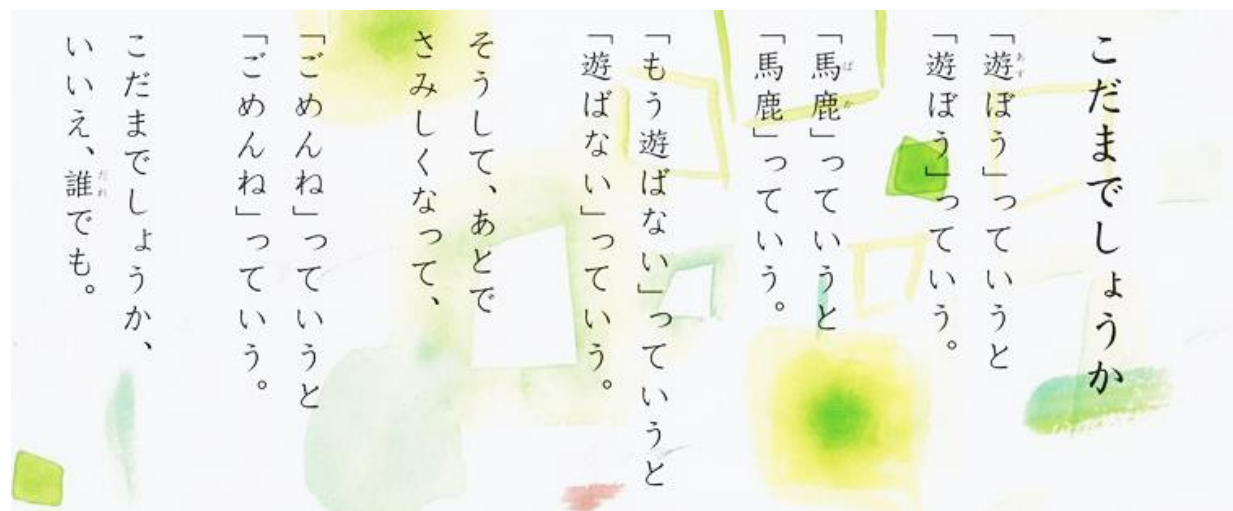 こだまでしょうか
「遊ぼう」っていうと
「遊ぼう」っていう。
「馬鹿」っていうと
「馬鹿」っていう。
「もう遊ばない」っていうと
「遊ばない」っていう。
そうして、あとで
さみしくなって、
「ごめんね」っていうと
「ごめんね」っていう。
こだまでしょうか、
いいえ、誰でも。